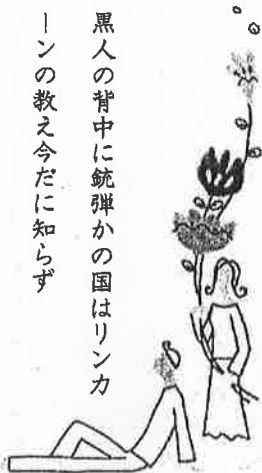 黒人の背中に銃弾かの国はリンカ
ーンの教え今だに知らず